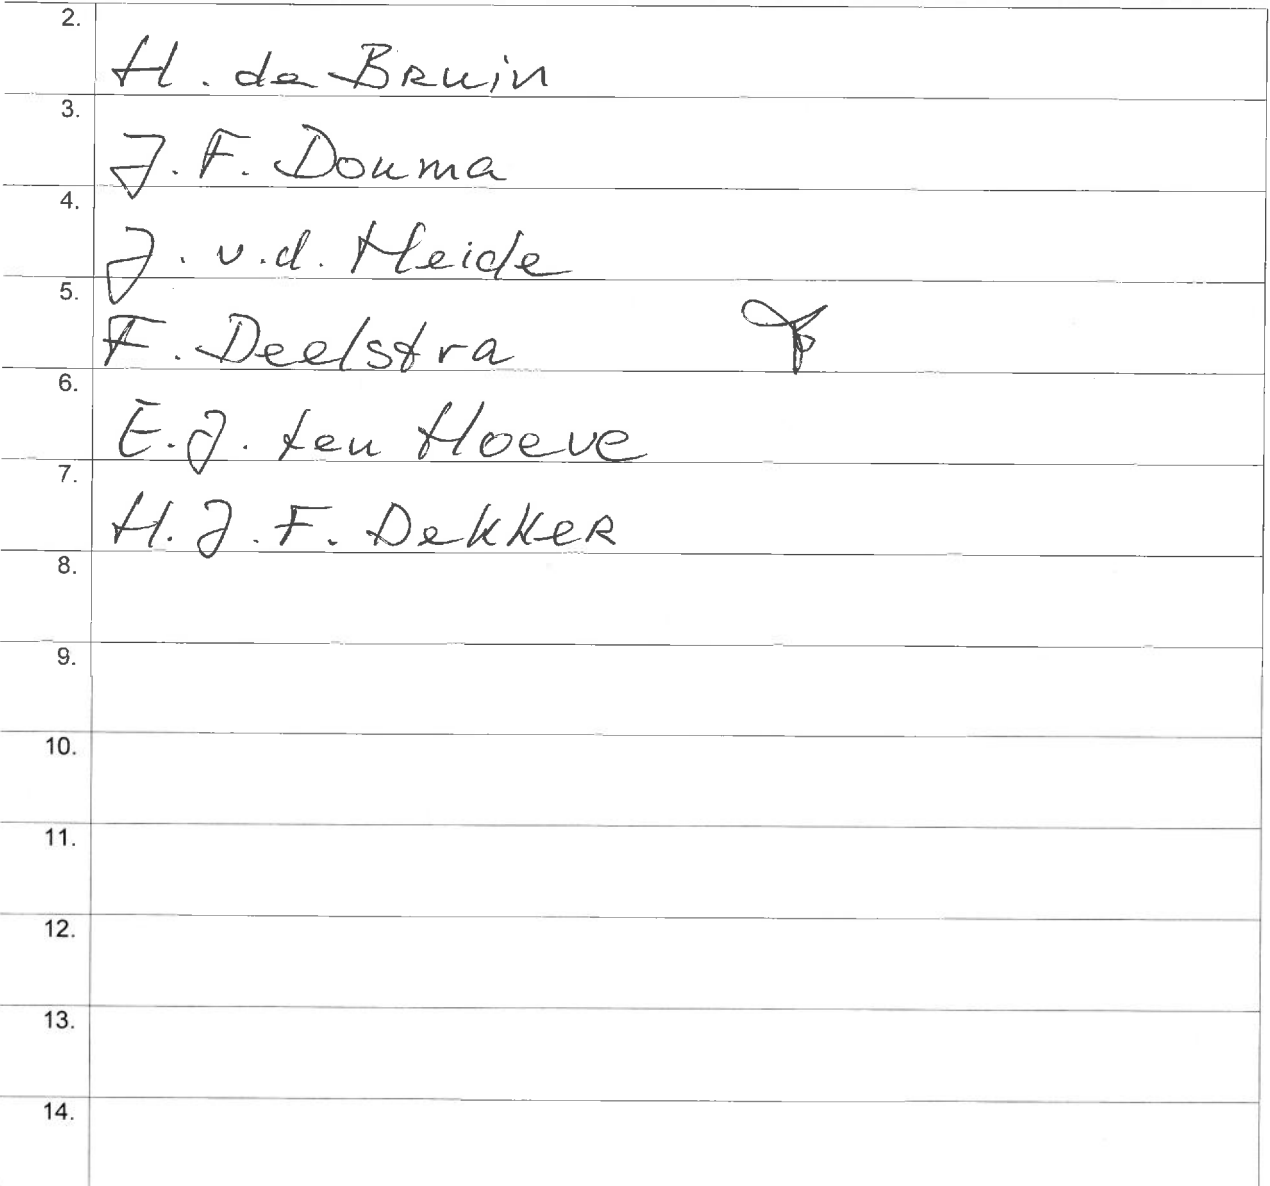 2.
H. de Bruin
3.
J. F. Douma
4.
J. v.d. Heide
5.
F. Deelstra
6.
E.J. ten Hoeve
7.
H. J. F. Dekker
8.
9.
10.
11.
12.
13.
14.